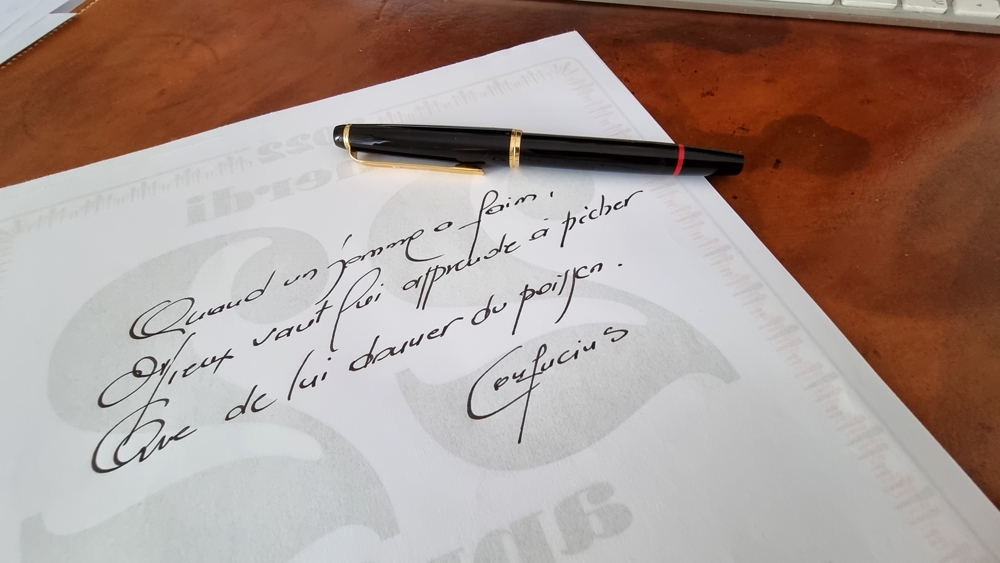 Quand un homme a faim,
Mieux vaut lui apprendre à pêcher
Que de lui donner du poisson.
Confucius